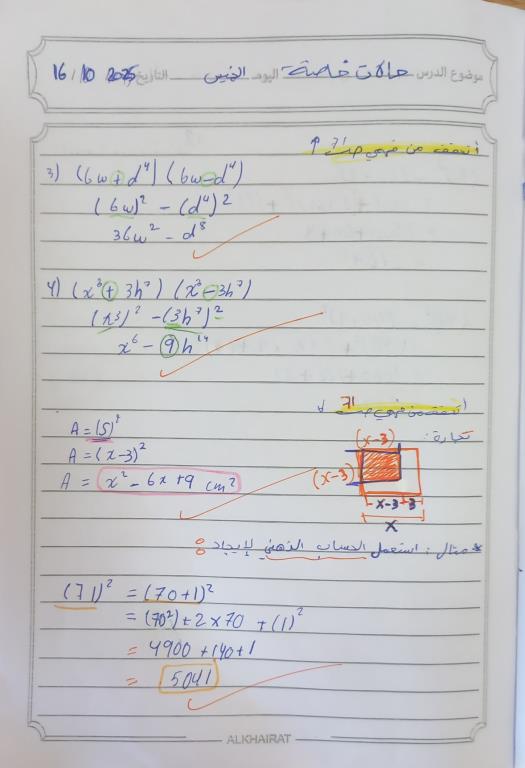 موضوع الدرس حالات خاصة اليوم الخميس التاريخ 16 / 10 2025
أتحقق من فهمي صـ 71
3) (6w + d⁴) (6w - d⁴)
(6w)² - (d⁴)²
36w² - d⁸
4) (x³ + 3h⁷) (x³ - 3h⁷)
(x3)² - (3h⁷)²
x⁶ - 9h¹⁴
أتحقق من فهمي صـ 71
نجارة:
A = (S)²
A = (x-3)²
A = x² - 6x + 9 cm²
(x-3)
(x-3)
x-3 3
x
* مثال: استعمل الحساب الذهني لإيجاد :
(71)² = (70+1)²
= (70²) + 2 × 70 + (1)²
= 4900 + 140 + 1
= 5041
ALKHAIRAT